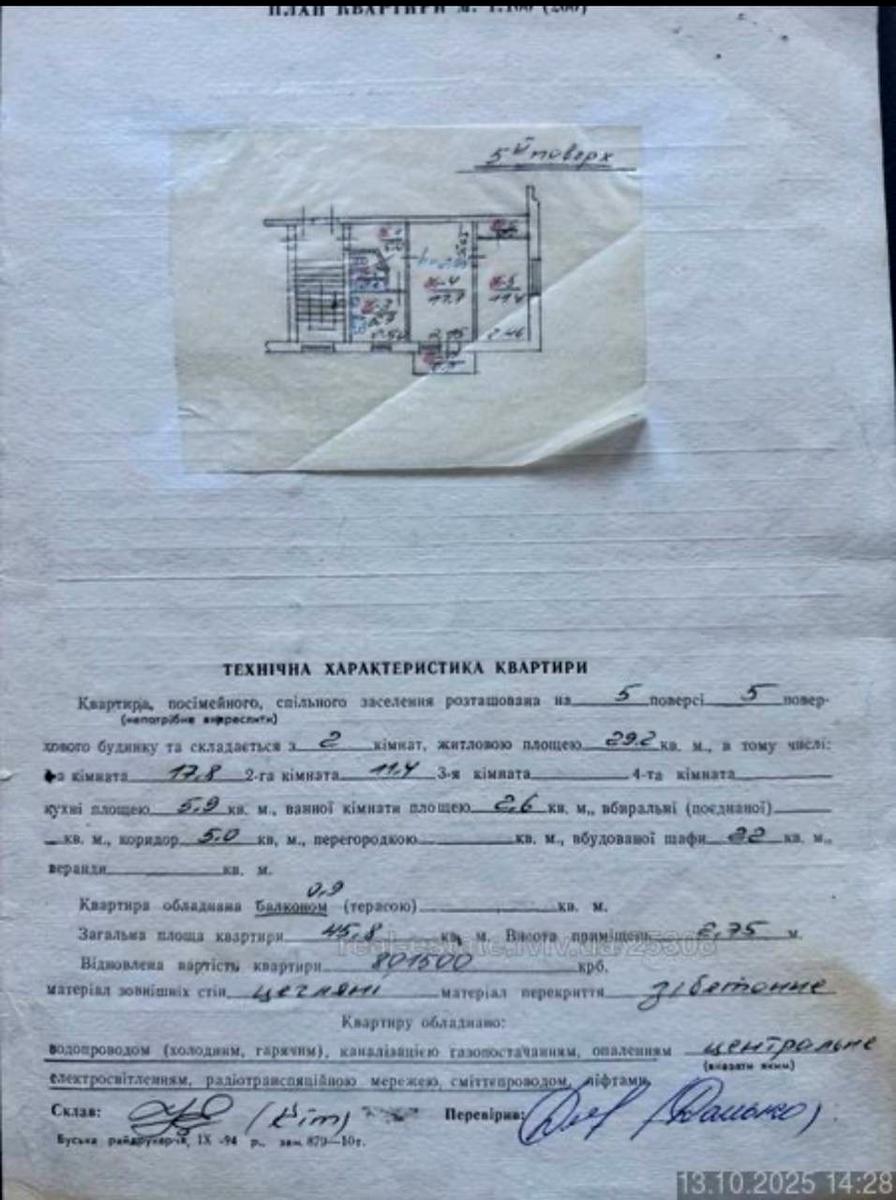 ПЛАН КВАРТИРИ М. 1:100 (200)
5й поверх
ТЕХНІЧНА ХАРАКТЕРИСТИКА КВАРТИРИ
Квартира, посімейного, спільного заселення розташована на 5 поверсі 5 повер-
(непотрібне викреслити)
хового будинку та складається з 2 кімнат, житловою площею 29.2 кв. м., в тому числі:
1-а кімната 17.8 2-га кімната 11.4 3-я кімната 4-та кімната
кухні площею 5,9 кв. м., ванної кімнати площею 2,6 кв. м,, вбиральні (поєднаної)
кв. м., коридор 5.0 кв, м., перегородкою кв. м., вбудованої шафи кв. м.,
веранди кв. м.
0,9
Квартира обладнана балконом (терасою) кв. м.
Загальна площа квартири 45,8 кв. м. Висота приміщень 2,75 м.
real-estate.lviv.ua
Відновлена вартість квартири 801500 крб.
матеріал зовнішніх стін цегляні матеріал перекриття з/бетонне
Квартиру обладнано:
водопроводом (холодним, гарячим), каналізацією газопостачанням, опаленням центральне
(вказати яким)
електросвітленням, радіотрансляційною мережею, сміттєпроводом, ліфтами,
Склав: Перевірив:
Буська райдрукарня, ІХ -94 р., зам. 879—10т.
13.10.2025 14:28